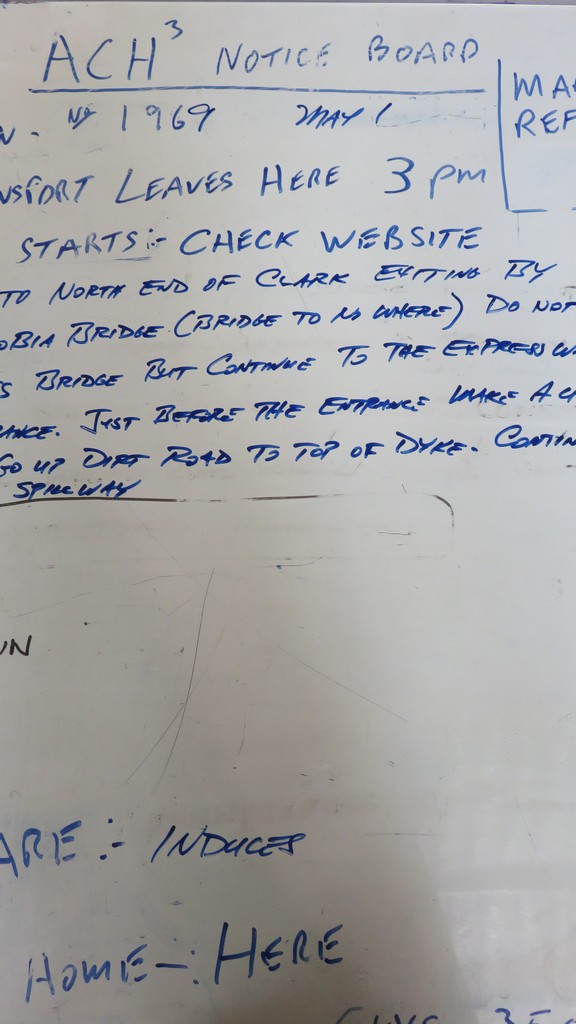 ACH³ NOTICE BOARD
N - No 1969 MAY 1
MA
REF
NSPORT LEAVES HERE 3 pm
STARTS:- CHECK WEBSITE
TO NORTH END OF CLARK EXITING BY
OBIA BRIDGE (BRIDGE TO NO WHERE) DO NOT
S BRIDGE BUT CONTINUE TO THE EXPRESSW
RANCE. JUST BEFORE THE ENTRANCE MAKE A
GO UP DIRT ROAD TO TOP OF DYKE. CONTIN
SPILLWAY
UN
ARE :- INDUCES
HOME -: HERE